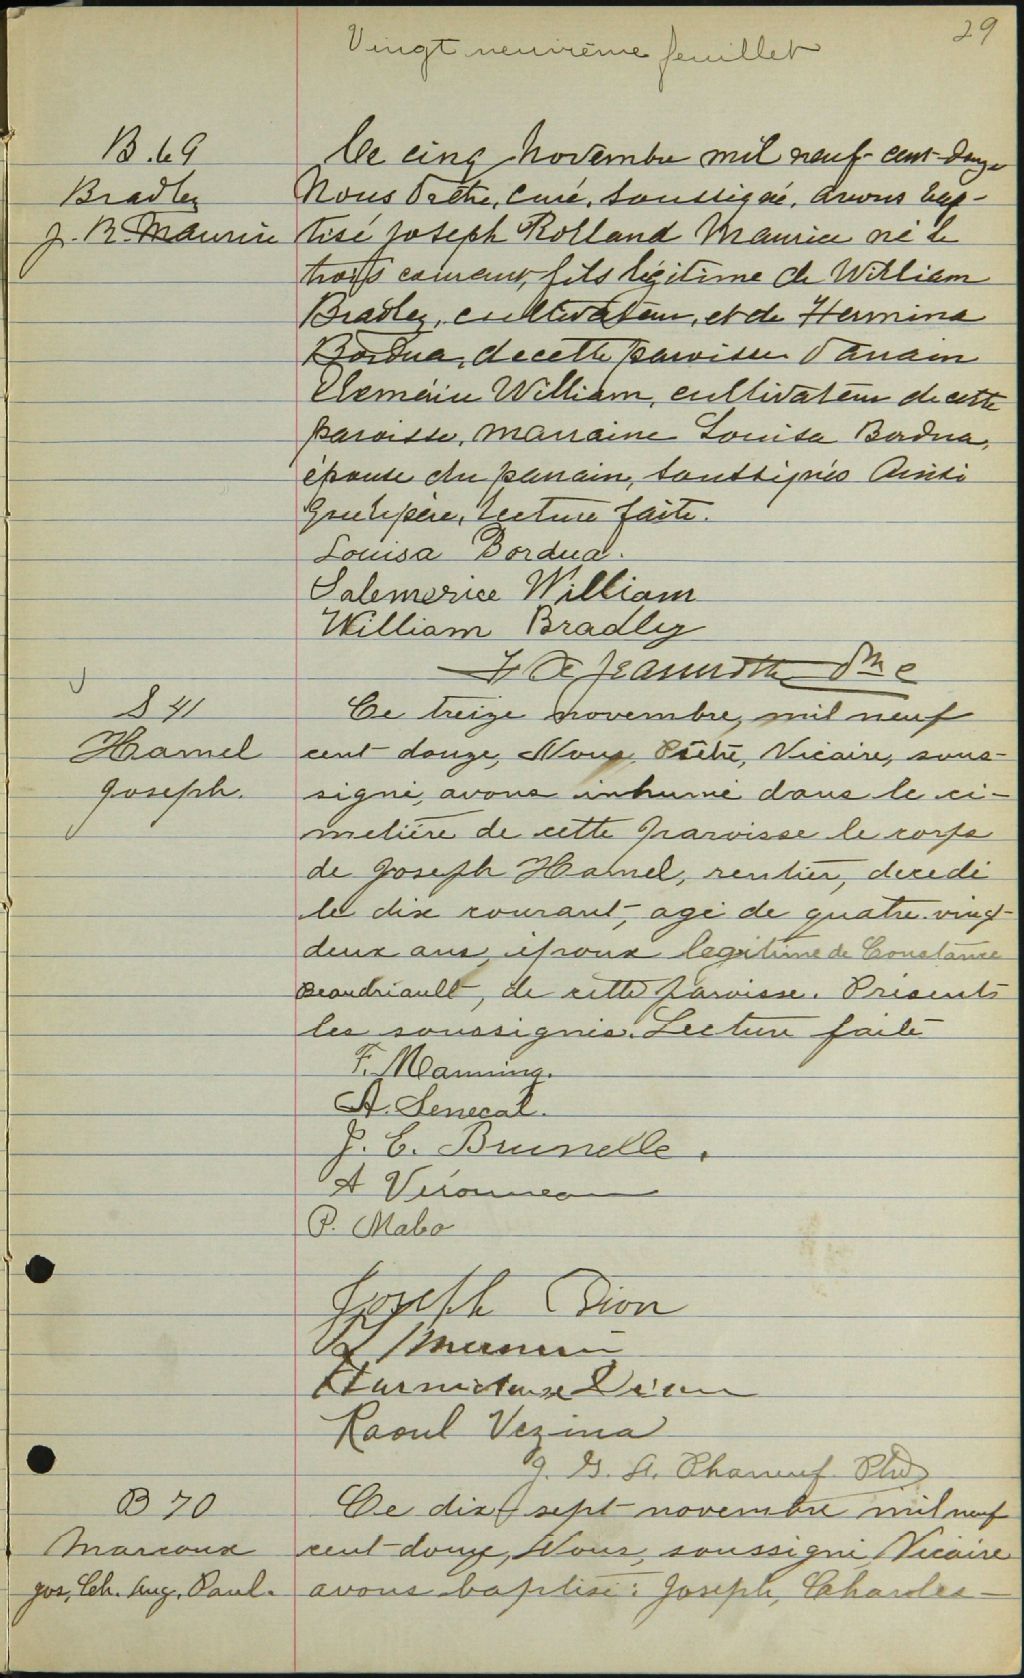 29
Vingt neuvième feuillet
B. 69
Bradley
J. R. Maurice
Le cinq Novembre mil neuf-cent-douze
Nous Prêtre, curé, soussigné, avons bap-
tisé Joseph Rolland Maurice né le
trois courant, fils légitime de William
Bradley, cultivateur, et de Hermina
Bordua, de cette paroisse Parrain
William, cultivateur de cette
paroisse, marraine Louisa Bordua,
épouse du parrain, soussignés Ainsi
que le père, Lecture faite.
Louisa Bordua.
Salemerice William
William Bradley
Jeannotte Ptre
S 41
Hamel
Joseph.
Ce treize novembre, mil neuf
cent douze, Nous, Prêtre, Vicaire, sous-
signé, avons inhumé dans le ci-
metière de cette paroisse le corps
de Joseph Hamel, rentier, décédé
le dix courant, agé de quatre-vingt-
deux ans, époux legitime de Constance
Beaudriault, de cette paroisse. Présents
les soussignés. Lecture faite
F. Manning.
A. Senecal.
J. E. Brunelle.
A Véronneau
P. Mabo
Joseph Dion
Raoul Vezina
J. G. A. Phaneuf Ptre
B 70
Marcoux
Jos, Ch. Aug. Paul.
Ce dix-sept novembre mil neuf
cent-douze, Nous, soussigné Vicaire
avons baptisé: Joseph, Charles-